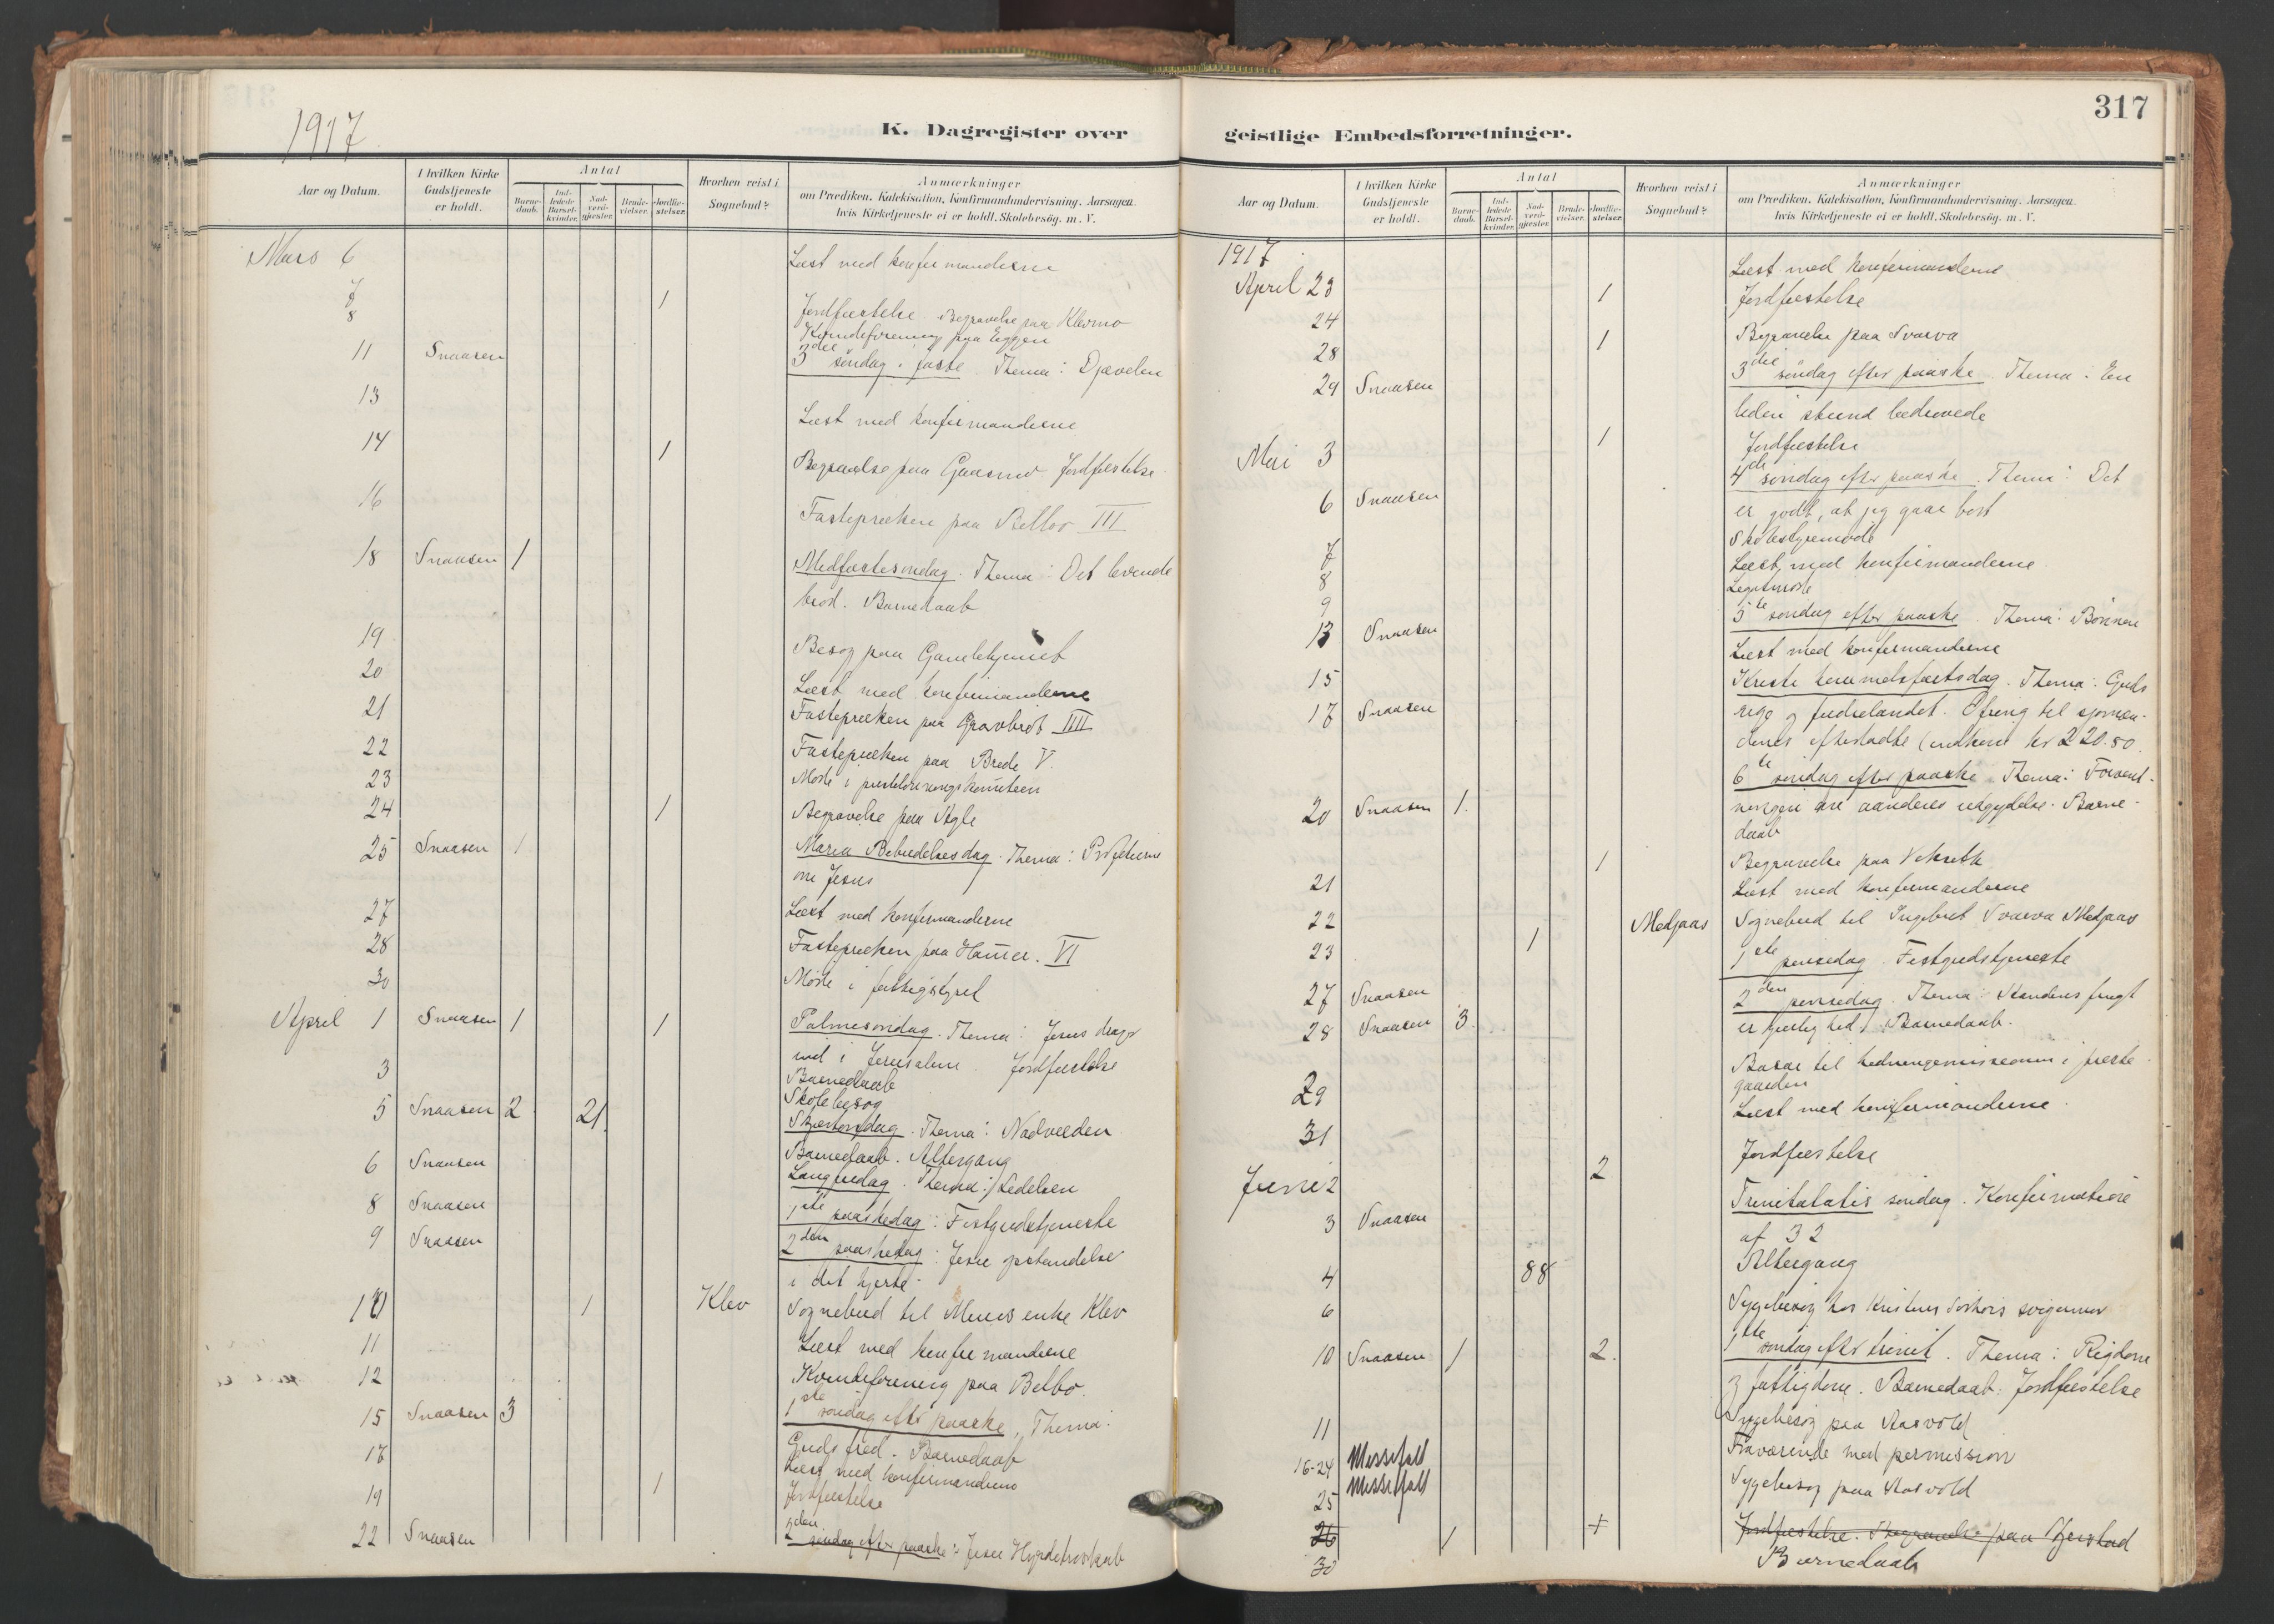 1917
K. Dagregister over
Aar og Datum.
I hvilken Kirke Gudstjeneste er holdt.
Antal
Barnedaab.
Indledede Barselkvinder.
Nadverdgjester.
Brudevielser.
Jordfæstelser.
Hvorhen reist i Sognebud?
Anmærkninger
om Prædiken, Katekisation, Konfirmandundervisning, Aarsagen,
hvis Kirketjeneste ei er holdt, Skolebesøg, m. V.
Mars 6 Læst med konfirmanderne
7 1 Jordfæstelse. Begravelse paa Klevmo
8 Kvindeforening paa Eggen
11 Snaasen 3die søndag i faste. Thema: Djævelen
13 Læst med konfirmanderne
14 1 Begravelse paa Gaasmo Jordfæstelse
16 Fastepræken paa Belbo III
18 Snaasen 1 Midfastesøndag. Thema: Det levende
brød. Barnedaab
19 Besøg paa Gamlehjemmet
20 Læst med konfirmanderne
21 Fastepræken paa Gravbrøt IIII
22 Fastepræken paa Brede V.
23 Møte i
24 1 Begravelse paa Agle
25 Snaasen 1 Maria Bebudelsesdag. Thema: Profetierne
om Jesus
27 Læst med konfirmanderne
28 Fastepræken paa Hammer. VI
30 Møte i fattigstyret
April 1 Snaasen 1 1 Palmesøndag. Thema: Jesus drager
ind i Jerusalem. Jordfæstelse
Barnedaab
3 Skolebesøg
5 Snaasen 2 21. Skjærtorsdag. Thema: Nadverden
Barnedaab. Altergang
6 Snaasen Langfredag. Thema: Lidelsen
8 Snaasen 1ste paaskedag: Festgudstjeneste
9 Snaasen 2den paaskedag: Jesu opstandelse
i det hjerte.
10 1 Klev Sognebud til enke Klev
11 Læst med konfirmanderne
12 Kvindeforening paa Belbo.
15 Snaasen 3 1ste søndag efter paaske, Thema:
Guds fred. Barnedaab
17 Læst med konfirmanderne
19 1 Jordfæstelse
22 Snaasen 2den søndag efter paaske: Jesu Hyrdetroskab
317
geistlige Embedsforretninger.
Aar og Datum.
I hvilken Kirke Gudstjeneste er holdt.
Antal
Barnedaab.
Indledede Barselkvinder.
Nadverdgjester.
Brudevielser.
Jordfæstelser.
Hvorhen reist i Sognebud?
Anmærkninger
om Prædiken, Katekisation, Konfirmandundervisning, Aarsagen,
hvis Kirketjeneste ei er holdt, Skolebesøg, m. V.
1917
Læst med konfirmanderne
April 23 1 Jordfæstelse
24
28 1 Begravelse paa Svarva
29 Snaasen 3die søndag efter paaske. Thema: En
liden stund bedrøvede
Mai 3 1 Jordfæstelse
6 Snaasen 4de søndag efter paaske. Thema: Det
er godt, at jeg gaar bort
7 Skolestyremøde
8 Læst med konfirmanderne
9 Legatmøte
13 Snaasen 5te søndag efter paaske. Thema: Bønnen
15 Læst med konfirmanderne
17 Snaasen Kristi himmelfartsdag. Thema: Guds
rige og fædrelandet. Ofring til sjømæn-
denes efterladte (indkom kr 220.80
20 Snaasen 1. 6te søndag efter paaske. Thema: Forvent-
ningen om aandens udgydelse. Barne-
daab
21 1 Begravelse paa Vekseth
22 Læst med konfirmanderne
23 1 Medjaas Sognebud til Ingebret Svarva Medjaas
27 Snaasen 1ste pinsedag. Festgudstjeneste
28 Snaasen 3. 2den pinsedag. Thema: Aandens frugt
er kjærlighed. Barnedaab.
29 Basar til hedningemissionen i præste-
gaarden
31 Læst med konfirmanderne
Juni 2 2 Jordfæstelse
3 Snaasen Trinitatatis søndag. Konfirmation
af 32
4 88 Altergang
6 Sygebesøg hos
10 Snaasen 1 2. 1ste søndag efter trinit. Thema: Rigdom
og fattigdom. Barnedaab. Jordfæstelse
11 Sygebesøg paa Aasvold
16-24 Messefald Fraværende med permission
25 Messefald Sygebesøg paa Aasvold
26 + Jordfæstelse. Begravelse paa Gjerstad
30 1 Barnedaab